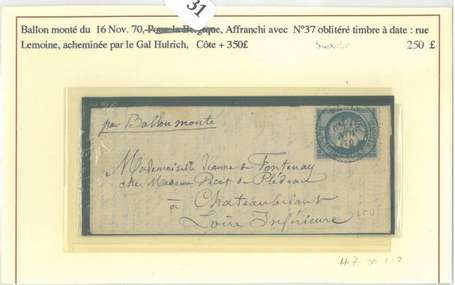 31
Ballon monté du 16 Nov. 70, Pour la Belgique, Affranchi avec N°37 oblitéré timbre à date : rue
Lemoine, acheminée par le Gal Hulrich, Côte + 350£ 250 £
par Ballon monté
Mademoiselle Jeanne de Fontenay
chez Madame Picot de Plédran
à Chateaubriant
Loire Inférieure